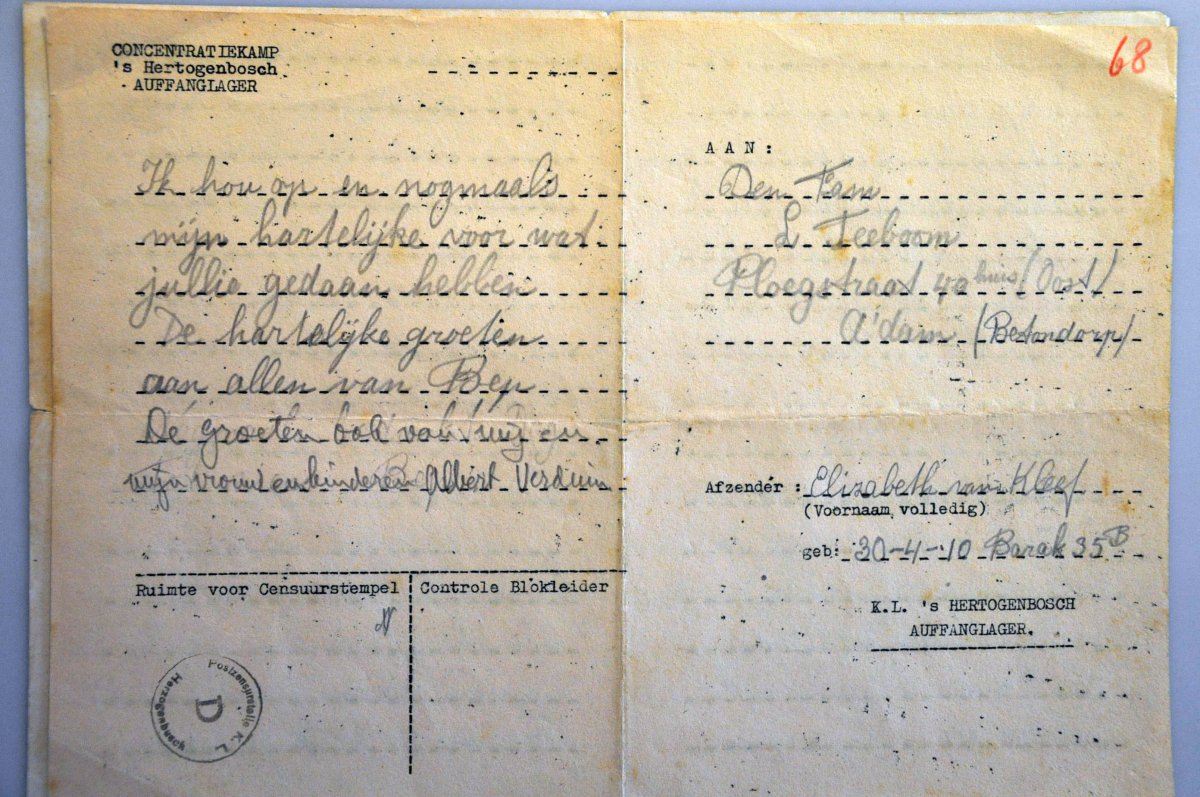 CONCENTRATIEKAMP
's Hertogenbosch
AUFFANGLAGER
Ik hou op en nogmaals
mijn hartelijke voor wat
jullie gedaan hebben
De hartelijke groeten
aan allen van Ben
De groeten ook van mij en
mijn vrouw en kinderen Albert Verduin
Ruimte voor Censuurstempel
Controle Blokleider
Postzensurstelle K. L.
D
Herzogenbusch
68
AAN:
Den Fam
L Teeboom
Ploegstraat 40 huis/Oost/
A'dam (Betondorp)
Afzender: Elizabeth van Kleef
(Voornaam volledig)
geb: 30-4-10 Barak 35 B
K.L. 's HERTOGENBOSCH
AUFFANGLAGER.